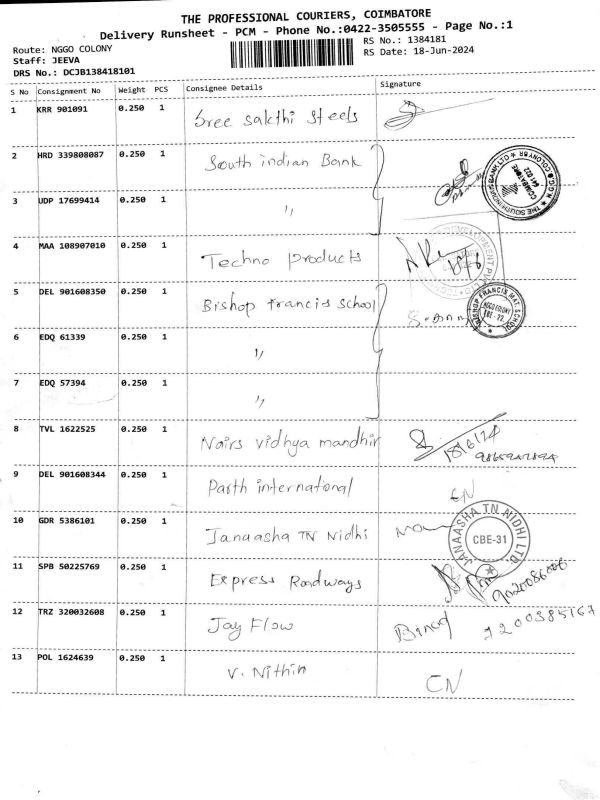 THE PROFESSIONAL COURIERS, COIMBATORE
Delivery Runsheet - PCM - Phone No.:0422-3505555 - Page No.:1
Route: NGGO COLONY
RS No.: 1384181
Staff: JEEVA
RS Date: 18-Jun-2024
DRS No.: DCJB138418101
S No Consignment No Weight PCS Consignee Details Signature
1 KRR 901091 0.250 1 Sree sakthi steels
2 HRD 339808087 0.250 1 South indian Bank
3 UDP 17699414 0.250 1 "
4 MAA 108907010 0.250 1 Techno products
5 DEL 901608350 0.250 1 Bishop francis school
6 EDQ 61339 0.250 1 "
7 EDQ 57394 0.250 1 "
8 TVL 1622525 0.250 1 Nairs vidhya mandhir 18/6/24
9 DEL 901608344 0.250 1 Parth international CN
10 GDR 5386101 0.250 1 Janaasha TN Nidhi JANAASHA TN NIDHI LTD. CBE-31
11 SPB 50225769 0.250 1 Express Roadways
12 TRZ 320032608 0.250 1 Jay Flow
13 POL 1624639 0.250 1 V. Nithin CN